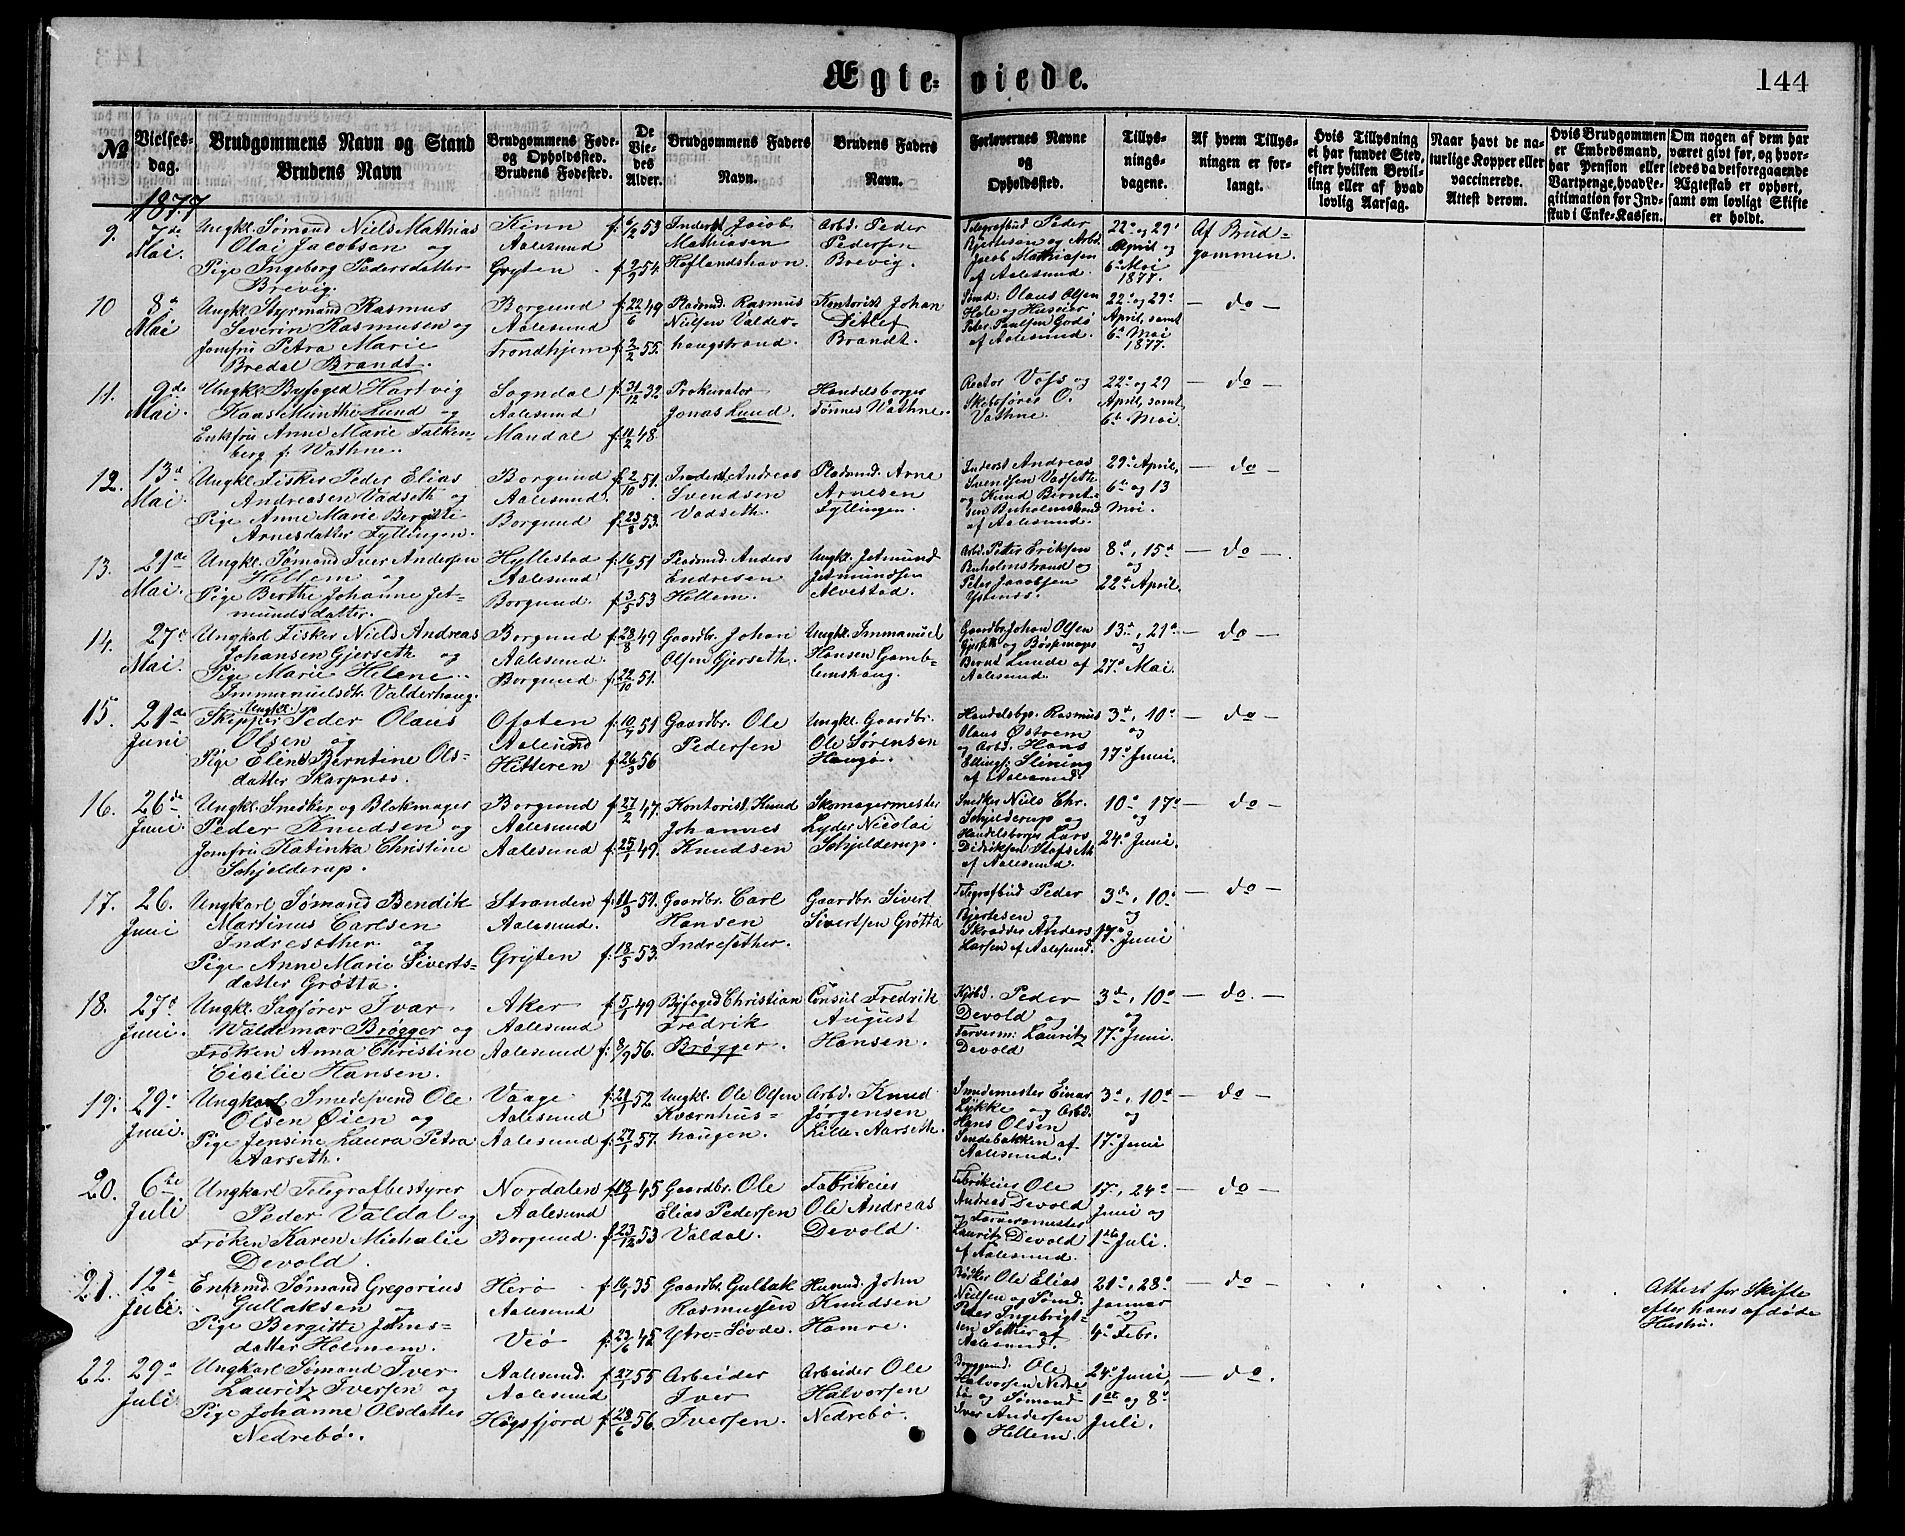 Ægte-
viede.
144
№
Vielses-
dag.
Brudgommens Navn og Stand
Brudens Navn
Brudgommens Føde-
og Opholdssted.
Brudens Fødested.
De
Vie-
des
Alder.
Brudgommens Faders
Navn.
Brudens Faders
Navn.
Forlovernes Navne
og
Opholdssted.
Tillys-
nings-
dagene.
Af hvem Tillys-
ningen er for-
langt.
Hvis Tillysning
ei har fundet Sted,
efter hvilken Bevil-
ling eller af hvad
lovlig Aarsag.
Naar havt de na-
turlige Kopper eller
vaccinerede.
Attest derom.
Hvis Brudgommen
er Embedsmand,
har Pension eller
Vartpenge, hvad Le-
gitimation for Ind-
skud i Enke-Kassen.
Om nogen af dem har
været givt før, og hvor-
ledes da det foregaaende
Ægteskab er ophørt,
samt om lovligt Skifte
er holdt.
1877
9.
7de
Mai.
Ungkl. Sømand Niels Mathias
Olai Jacobsen og
Pige Ingeborg Pedersdatter
Brevig.
Kinn
Aalesund
Gryten
f. 6/2 53
f. 2/9 54.
Inderst Jacob
Mathiasen
Hoflandshavn.
Arb. Peder
Pedersen
Brevig.
Telegrafbud Peder
Bjertesen og Arbd.
Jacob Mathiasen
af Aalesund.
22d og 29d
April og
6te Mai
1877.
Af Brud-
gommen.
10
8d
Mai
Ungkl. Styrmand Rasmus
Severin Rasmusen og
Jomfru Petra Marie
Bredal Brandt.
Borgund
Aalesund
Trondhjem
f. 22/6 49
f. 2/2 55.
Pladsmd. Rasmus
Nielsen Valder-
haugstrand.
Kontorist Johan
Ditlef
Brandt.
Sømd. Olaus Olsen
Hole og Huseier
Peter Paulsen Godø
af Aalesund.
22d og 29d
April, samt
6d Mai
1877.
— do —
11.
9de
Mai.
Ungkl. Byfoged Hartvig
Kaas Minthe Lund og
Enkefru Anne Marie Falken-
berg f. Wathne.
Sogndal
Aalesund
Mandal
f. 31/12 32
f. 11/2 48.
Prokurator
Jonas Lund.
Handelsborger
Tønnes Wathne.
Rector Voss og
Skibsfører O.
Vathne.
22d og 29
April, samt
6d Mai.
— do —
12.
13d
Mai
Ungkl. Fisker Peder Elias
Andreasen Vadseth og
Pige Anne Marie Bergitte
Arnesdatter Fyllingen.
Borgund
Aalesund.
Borgund
f. 2/10 51.
f. 23/8 53.
Inderst Andreas
Svendsen
Vadseth.
Pladsmd. Arne
Arnesen
Fyllingen.
Inderst Andreas
Svendsen Vadseth
og Knud Bernt-
sen Buholmstrand
af Aalesund.
29d April,
6d og 13
Mai.
— do —
13.
21de
Mai.
Ungkl. Sømand Iver Andersen
Hellem og
Pige Berthe Johanne Jet-
mundsdatter.
Hyllestad
Aalesund
Borgund.
f. 16/1 51
f. 3/5 53
Pladsmd. Anders
Endresen
Hellem.
Ungkl. Jetmund
Jetmundsen
Alvestad.
Arbd. Peter Eriksen
Buholmstrand og
Peter Jacobsen
Ystenes.
8d, 15d
og
22d April.
— do —
14.
27d
Mai.
Ungkarl Fisker Niels Andreas
Johansen Gjerseth og
Pige Marie Helene
Immanuelsdr. Valderhaug.
Borgund
Aalesund.
Borgund
f. 28/8 49
f. 22/10 51.
Gaardbr. Johan
Olsen Gjerseth.
Ungkl. Immanuel
Hansen Gamb-
lemshaug.
Gaardbr. Johan Olsen
Gjerseth og Børsemager
Bernt Lunde af
Aalesund.
13d, 21d
og
27d Mai.
— do —
15.
21de
Juni
Ungkl.
Skipper Peder Olaus
Olsen og
Pige Eline Berntine Ols-
datter Skarpnes.
Ofoten
Aalesund
Hitteren
f. 10/7 51
f. 26/3 56
Gaardbr. Ole
Pedersen
Ungkl. Gaardbr.
Ole Sørensen
Haugø.
Handelsbgr. Rasmus
Olaus Østrem
og Arbd. Hans
Ellings. Slining
af Aalesund.
3d, 10d
og
17d Juni.
— do —
16.
26de
Juni.
Ungkl. Snedker og Blokmager
Peder Knudsen og
Jomfru Katinka Christine
Schjelderup.
Borgund
Aalesund
Aalesund
f. 27/2 47.
f. 25/1 49.
Kontorist Knud
Johannes
Knudsen
Skomagermester
Lyder Nicolai
Schjelderup.
Snedker Niels Chr.
Schjelderup og
Handelsborger Lars
Didriksen Stafseth
af Aalesund.
10d 17d
og
24d Juni.
— do —
17.
26.
Juni
Ungkarl Sømand Bendik
Martinus Carlsen
Indresæther og
Pige Anne Marie Siverts-
datter Grøtta.
Stranden
Aalesund.
Gryten
f. 11/3 51.
f. 18/5 53.
Gaardbr. Carl
Hansen
Indresæther.
Gaardbr. Sivert
Sivertsen Grøtta
Telegrafbud Peder
Bjertesen og
Skrædder Anders
Hansen af Aalesund.
3de, 10d
og
17d Juni
— do —
18.
27d
Juni.
Ungkl. Sagfører Ivar
Waldemar Brøgger og
Frøken Anna Christine
Cicilie Hansen.
Aker
Aalesund
Aalesund
f. 5/1 49
f. 8/9 56.
Byfoged Christian
Fredrik
Brøgger.
Consul Fredrik
August
Hansen.
Kjøbd. Peder
Devold og
Farverm: Lauritz
Devold
3de, 10d
og
17d Juni.
— do. —
19.
29d
Juni.
Ungkarl Smedsvend Ole
Olsen Øien og
Pige Jensine Laura Petra
Aarseth.
Vaage
Aalesund
Aalesund
f. 21/1 52.
f. 27/1 57.
Ungkl. Ole Olsen
Kværnhus-
haugen.
Arbd. Knud
Jørgensen
Lille-Aarseth.
Smedemester Einar
Lykke og Arbd.
Hans Olsen
Søndebakken af
Aalesund.
3d, 10d
og
17d Juni
— do —
20.
6te
Juli
Ungkarl Telegrafbestyrer
Peder Valdal og
Frøken Karen Michalie
Devold.
Nordalen
Aalesund
Borgund.
f. 18/7 45
f. 23/12 53
Gaardbr. Ole
Elias Pedersen
Valdal.
Fabrikeier
Ole Andreas
Devold.
Fabrikeier Ole
Andreas Devold
og Farvermester
Lauritz Devold
af Aalesund.
17d, 24d
Juni og
1ste Juli.
— do —
21.
12d
Juli.
Enkemd. Sømand Gregorius
Gullaksen og
Pige Bergitte Johns-
datter Holmem.
Herø
Aalesund
Veø
f. 16/1 35
f. 23/6 45
Gaardbr. Gullak
Rasmussen
Ytre-Søvde.
Husmd. John
Knudsen
Hamre.
Bødker Ole Elias
Nielsen og Sømd.
Peder Ingebrigt-
sen Sætter af
Aalesund.
21d, 28d
Januar
og
4d Febr.
— do —
Attest for Skifte
efter hans afdøde
Hustru.
22.
29d
Juli
Ungkarl Sømand Iver
Lauritz Iversen og
Pige Johanne Olsdatter
Nedrebø.
Aalesund.
Aalesund
Høgsfjord
f. 27/1 55
f. 28/6 56.
Arbeider
Iver
Iversen.
Arbeider Ole
Halvorsen
Nedrebø.
Ole
Halvorsen Nedre-
bø og Sømand
Iver Andersen
Hellem.
24d Juni,
1ste og 8d
Juli.
— do.